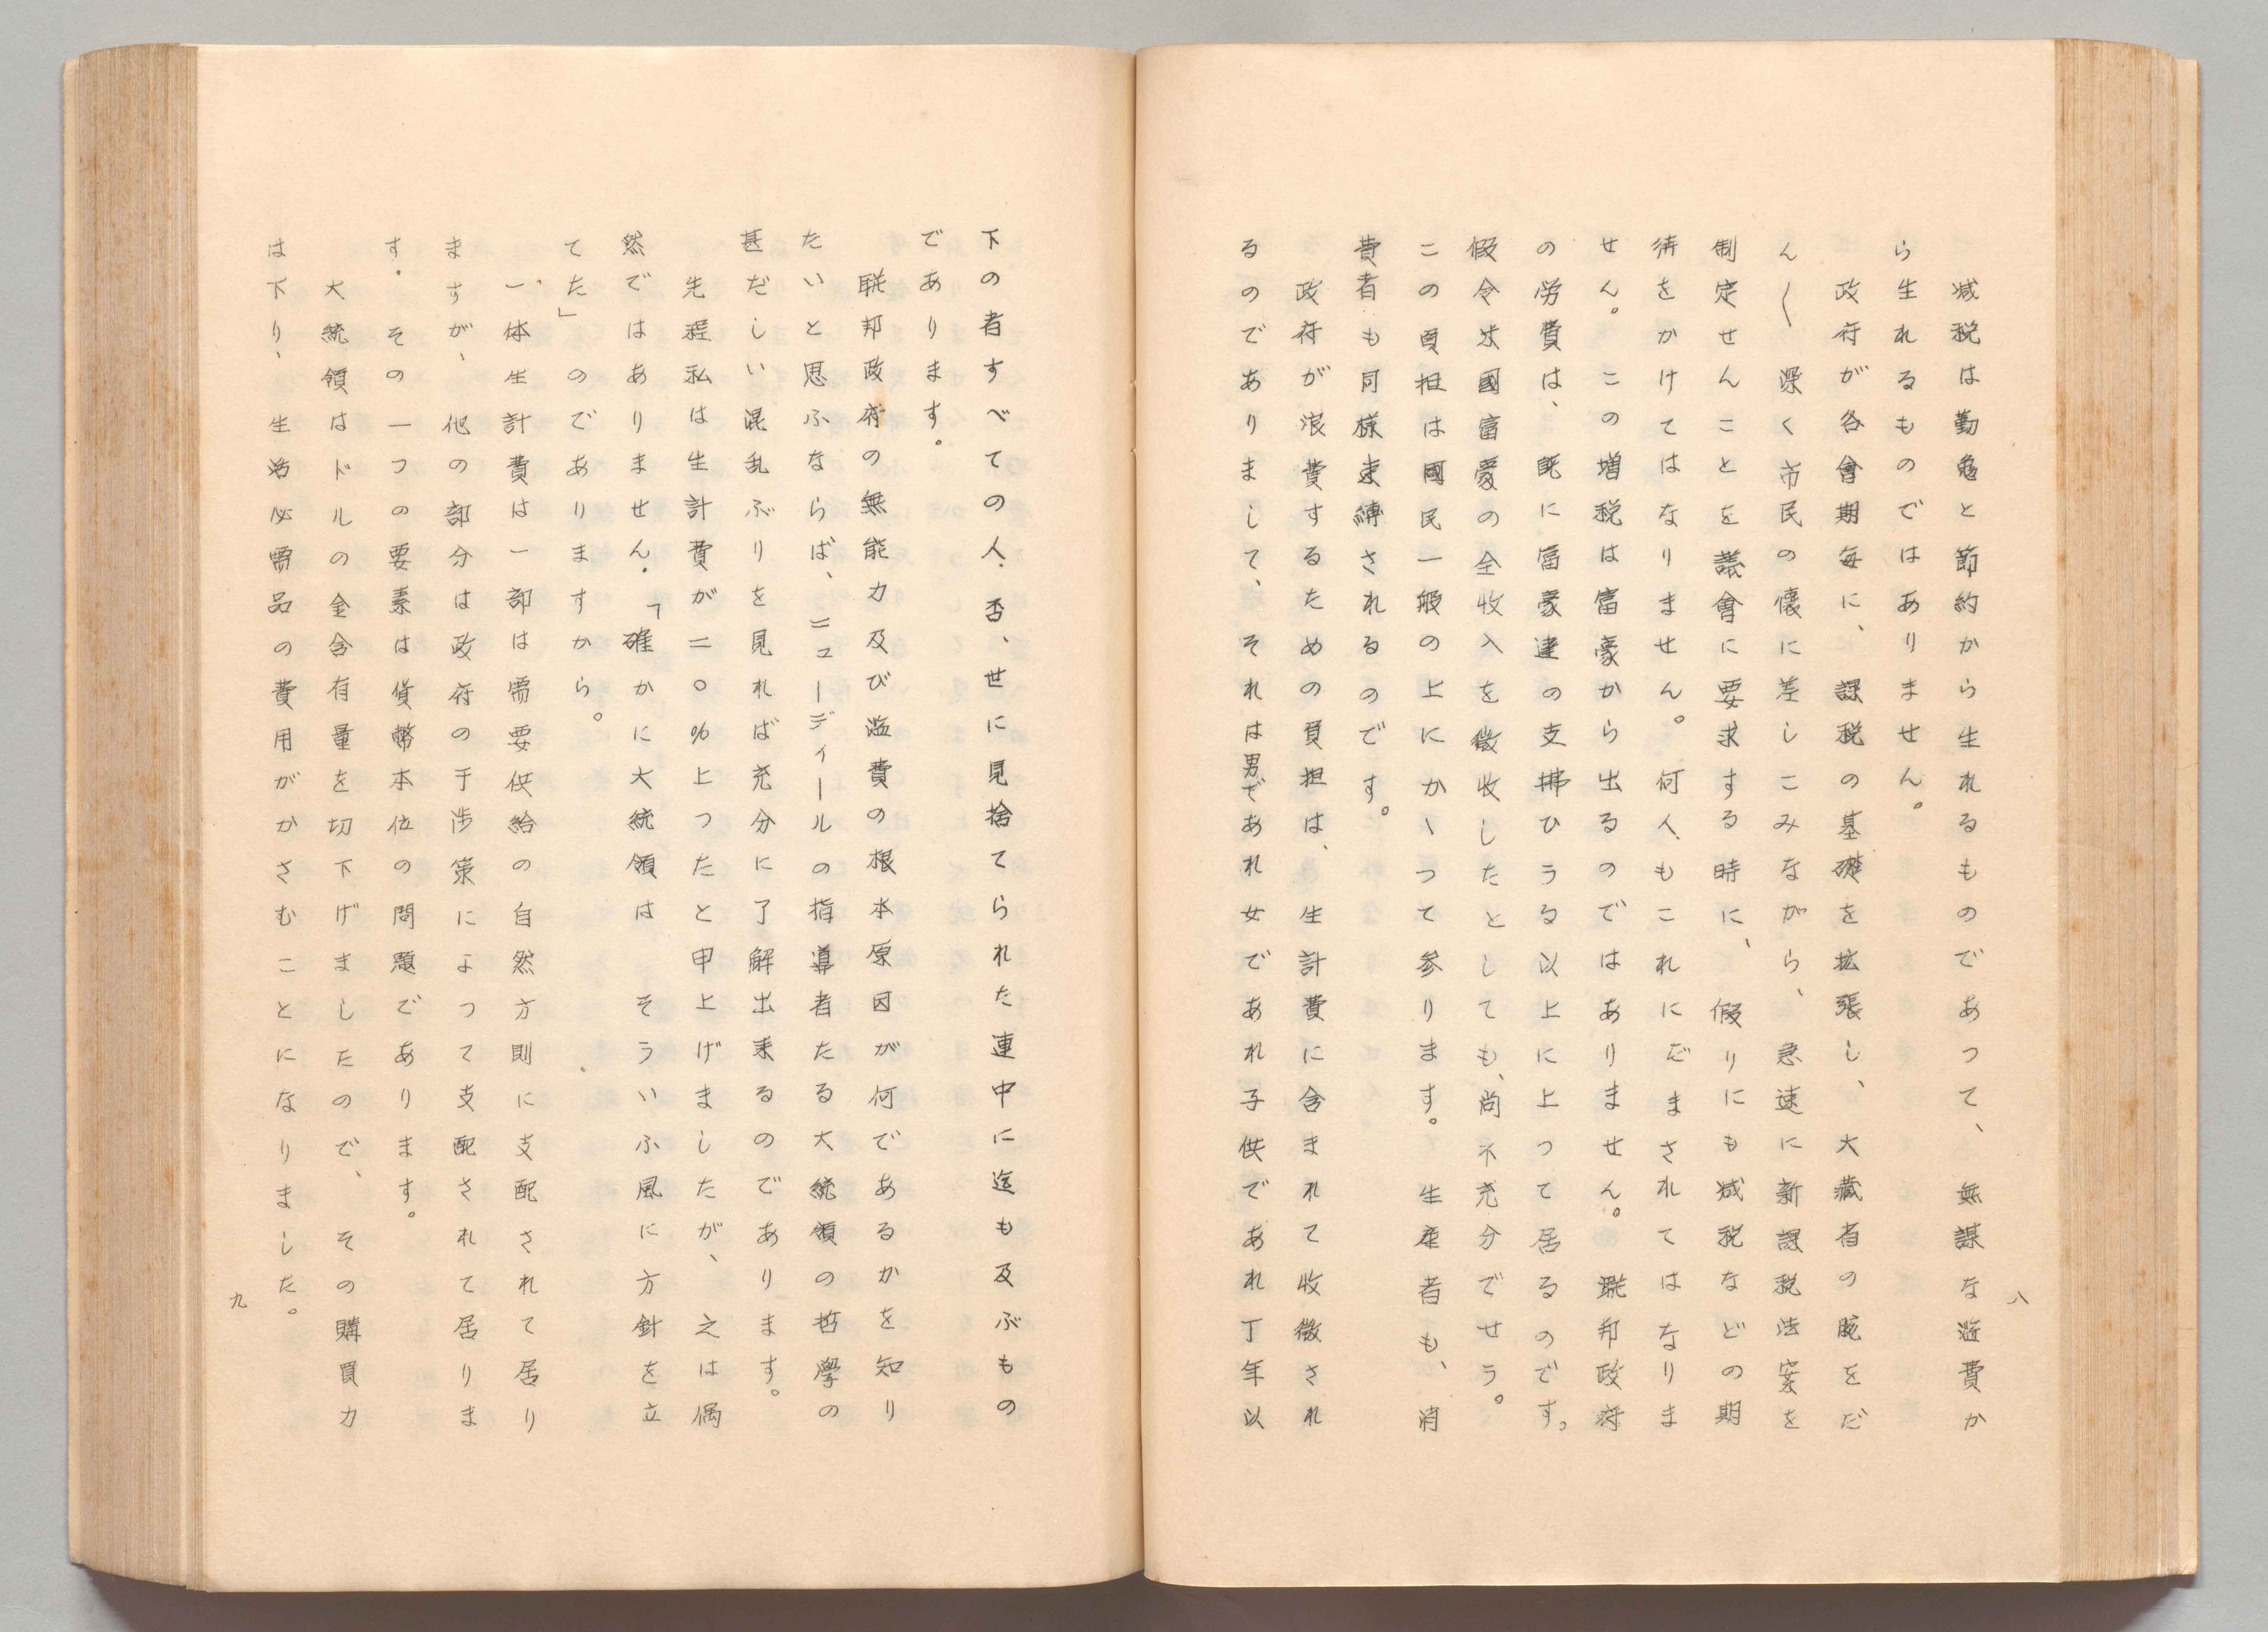 減税は勤勉と節約から生れるものであつて、無謀な濫費か
ら生れるものではありません。
政府が各會期毎に、課税の基礎を拡張し、大藏省の腕をだ
ん〱深く市民の懐に差しこみながら、急速に新課税法案を
制定せんことを議會に要求する時に、假りにも減税などの期
待をかけてはなりません。何人もこれにだまされてはなりま
せん。この増税は富豪から出るのではありません。聯邦政府
の労費は、既に富豪達の支拂ひうる以上に上つて居るのです。
假令米國富豪の全收入を徴收したとしても、尚不充分でせう。
この負担は國民一般の上にかゝつて参ります。生産者も、消
費者も同様束縛されるのです。
政府が浪費するための負担は、生計費に含まれて收徴され
るのでありまして、それは男であれ女であれ子供であれ丁年以
八
下の者すべての人、否、世に見捨てられた連中に迄も及ぶもの
であります。
聯邦政府の無能力及び濫費の根本原因が何であるかを知り
たいと思ふならば、ニューディールの指導者たる大統領の哲學の
甚だしい混乱ぶりを見れば充分に了解出来るのであります。
先程私は生計費が二〇%上つたと申上げましたが、之は偶
然ではありません。「確かに大統領は そういふ風に方針を立
てた」のでありますから。
一体生計費は一部は需要供給の自然方則に支配されて居り
ますが、他の部分は政府の干渉策によつて支配されて居りま
す。その一つの要素は貨幣本位の問題であります。
大統領はドルの金含有量を切下げましたので、その購買力
は下り、生活必需品の費用がかさむことになりました。
九